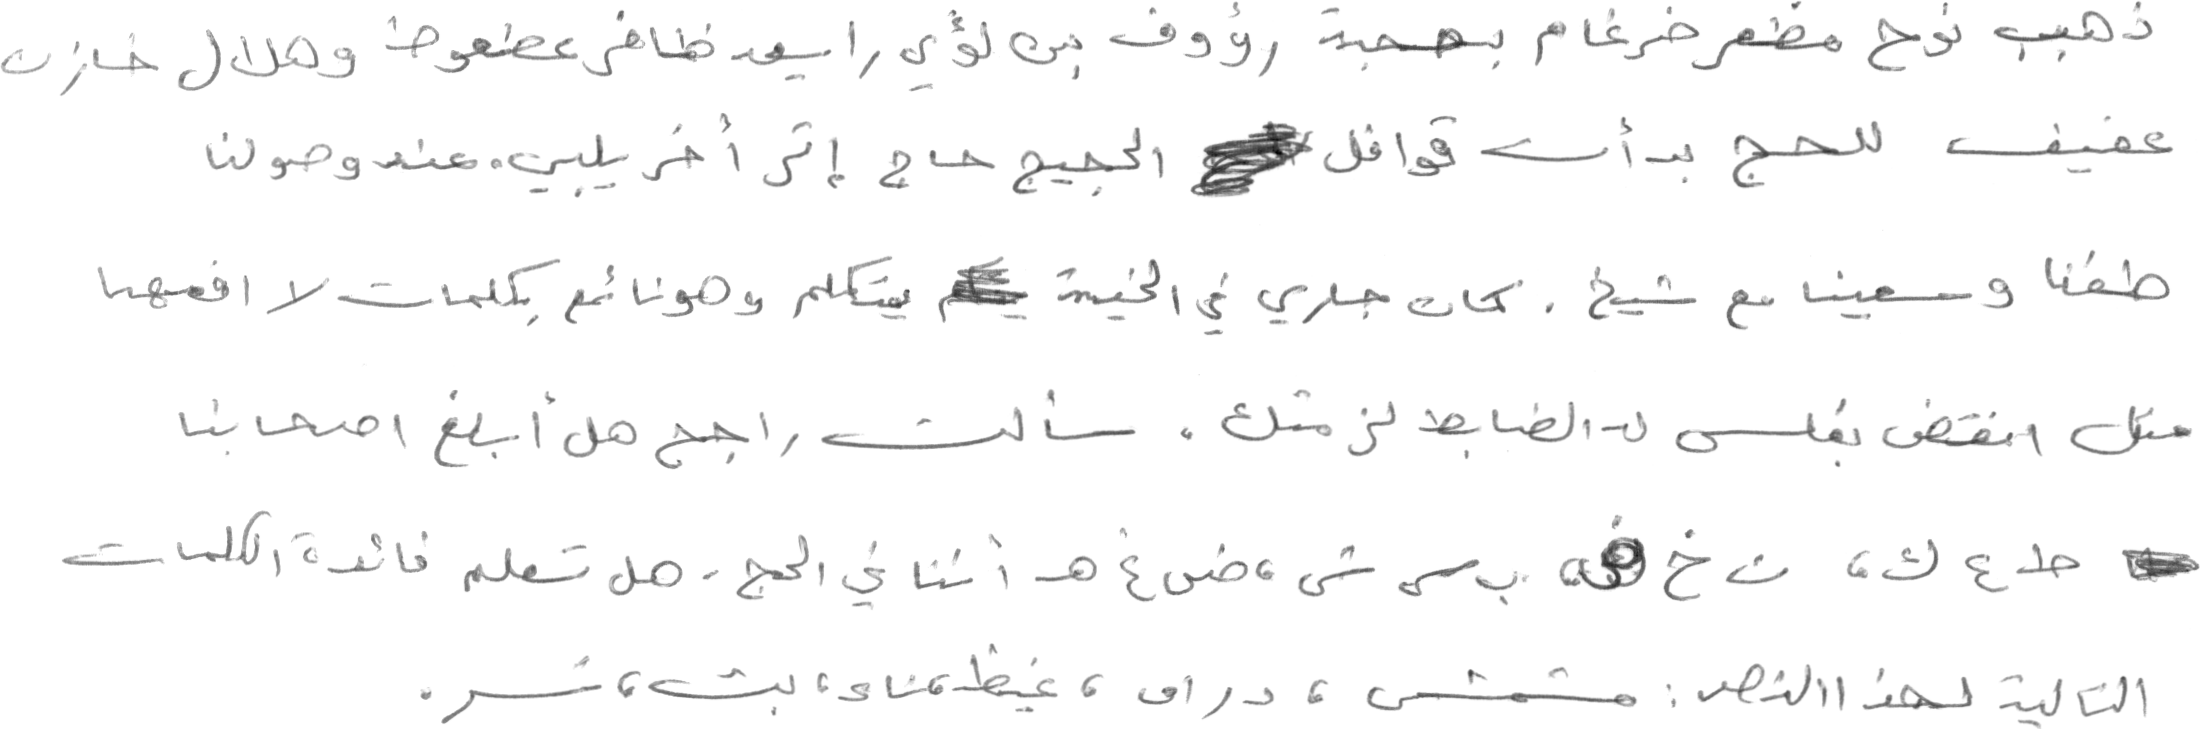 ذهب نوح مظفر ضرغام بصحبة رؤوف بن لؤي راسعد ظافر عطعوط وهلال خازن
عفيف للحج بدأت قوافل الحجيج حاج إثر أخر يلبي. عند وصولنا
طفنا وسعينا مع شيخ. كان جاري في الخيمة يتكلم وهو نائم بكلمات لا افهمها
مثل انقض بفلس لد الضابط لزمتك. سألت راجح هل أبلغ اصحابنا
ط ع ك، ث خ ب س ش، ض غ هـ أثنا في الحج. هل تعلم فائدة الكلمات
التالية لهذا النص: مشمش، دراق، غيظ، ناء، بث، شر.